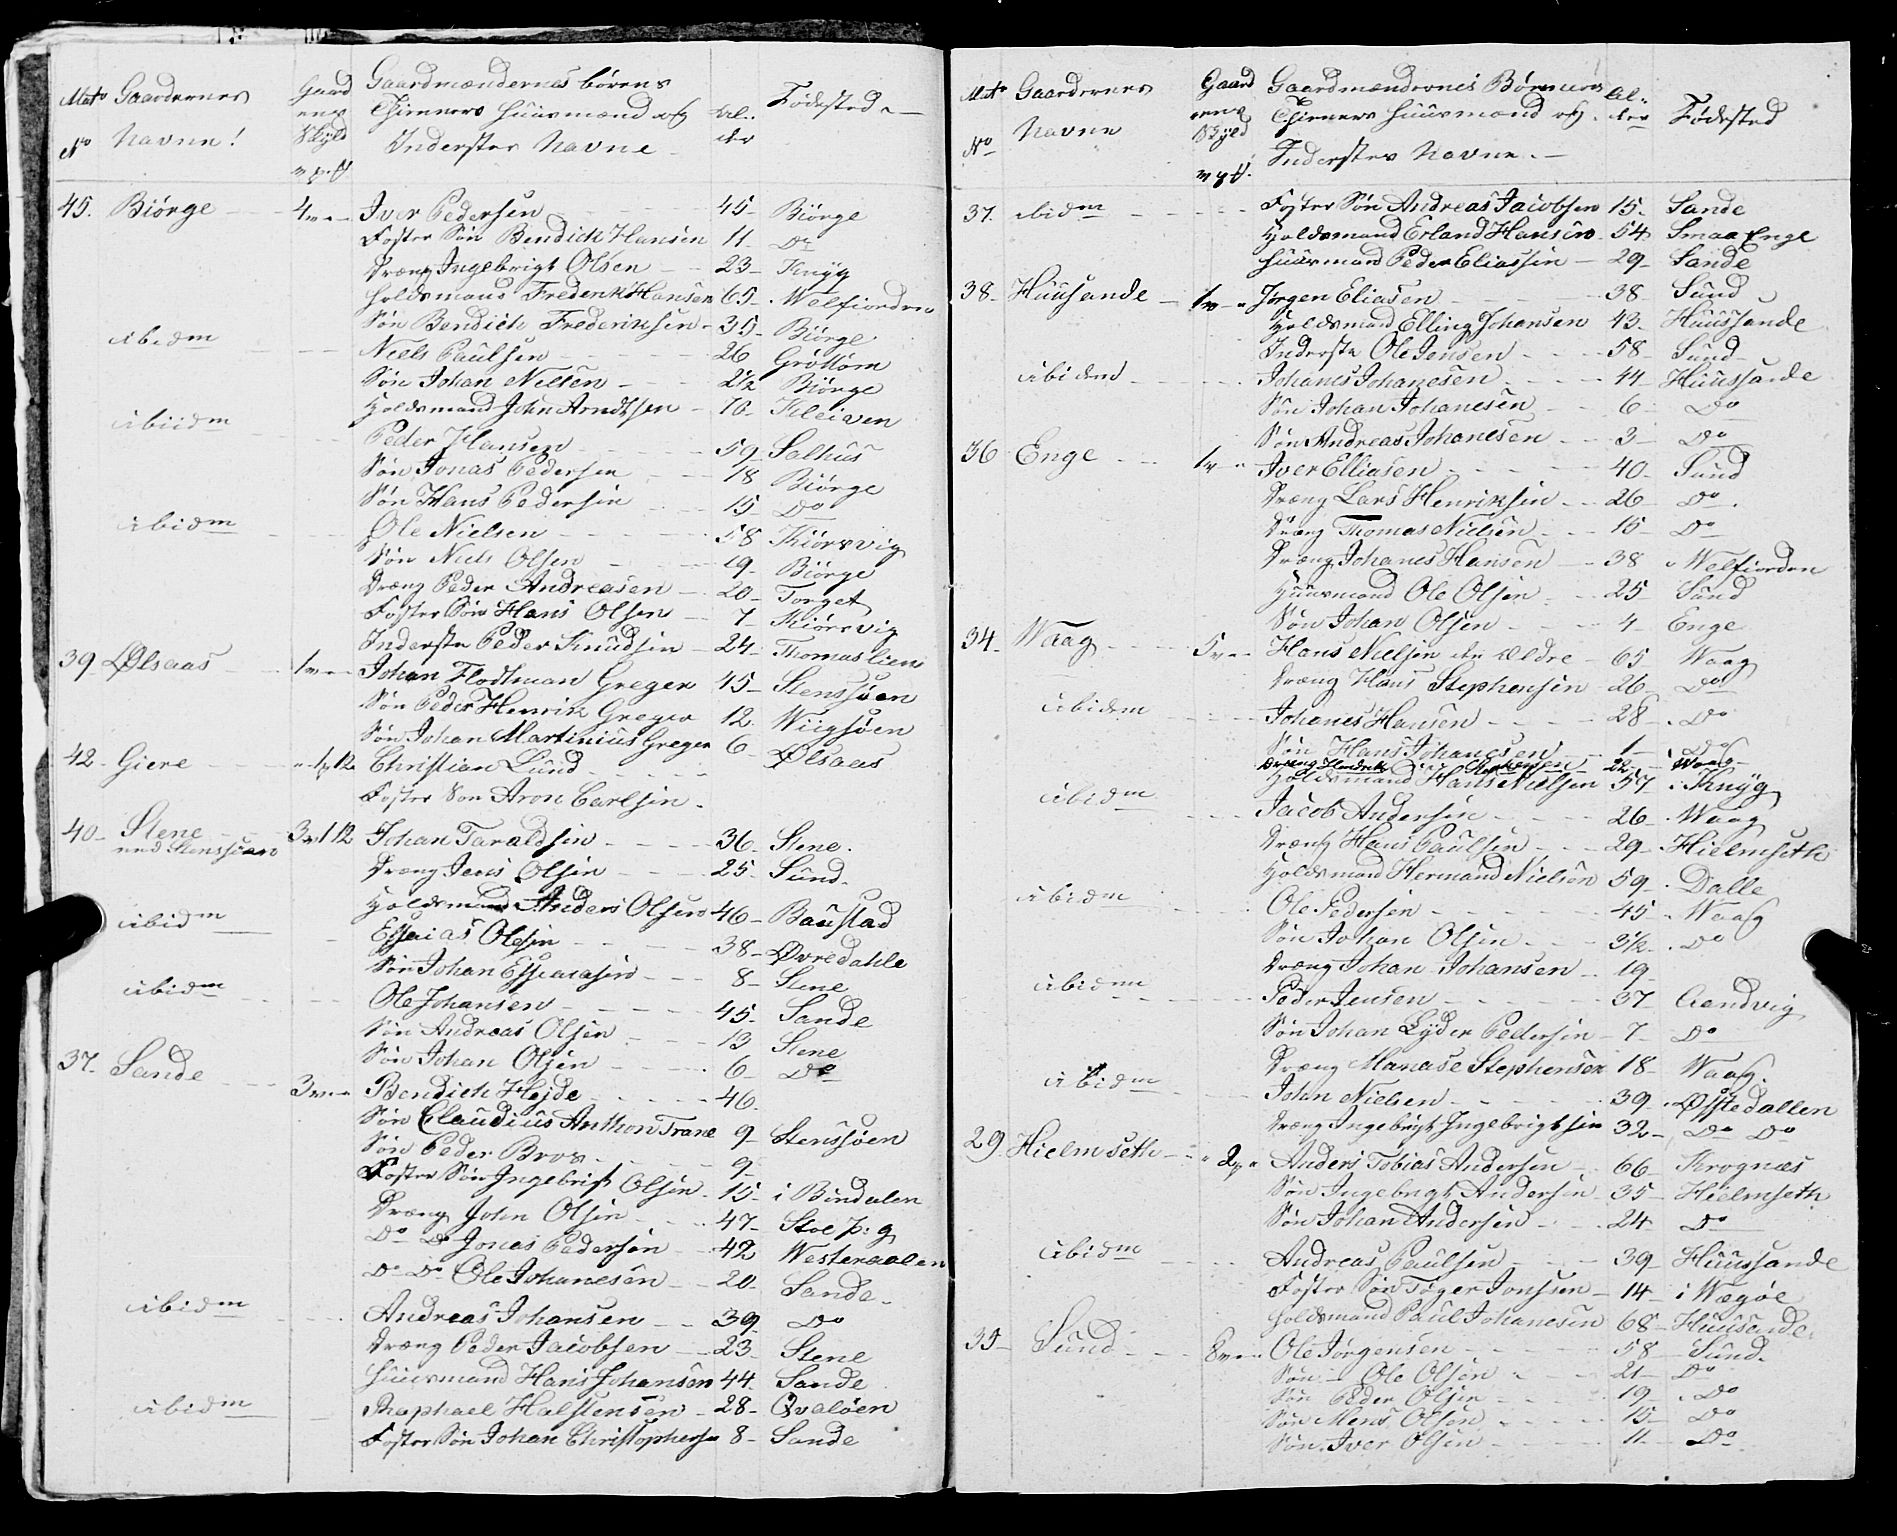 Mat. Gaardernes Gaard Gaardmændernes börens
No Navne! enes Skyld Thieners Huusmænd og Al der Födested
Indersters Navne
45. Biörge 4 Iver Pedersen 45 Biörge
Foster Sön Bendich Hansen 11 Do
Dræng Ingebrigt Olsen 23 Knÿg
Holdsmand Frederik Hansen 65 Welfiorden
Sön Bendich Frederiksen 35 Biörge
ibidm Niels Paulsen 26 Gröttöm
Sön Johan Nielsen 2½ Biörge
Holdsmand John Arndtsen 70 Kleiven
ibiidm Peder Hansen 59 Salhus
Sön Jonas Pedersen 18 Biörge
Sön Hans Pedersen 15 Do
ibidm Ole Nielsen 58 Kiörsvig
Sön Niels Olsen 19 Biörge
Dræng Peder Andreasen 20 Torget
Foster Sön Hans Olsen 7 Kiörsvig
Inderste Peder Knudsen 24 Thomaslien
39 Ölsaas 1 Johan Flodtman Greger 45 Stenssöen
Sön Peder Henrik Greger 12 Wiigsöen
Sön Johan Martinius Greger 6 Ølsaas
42 Giere 1 12 Christian Lund
Foster Son Aron Carlsen
40 Stene 3 1 12 Johan Taraldsen 36 Stene
med Stenssöen
Dræng Jens Olsen 25 Sund
Holdsmand Anders Olsen 46 Baustad
ibidm Essaias Olsen 38 Øvredahle
Sön Johan Essaiasen 8 Stene
ibidm Ole Johansen 45 Sande
Sön Andreas Olsen 13 Stene
Sön Johan Olsen 6 Do
37 Sande 3 Bendich Hejde 46
Sön Claudius Anthon Trane 9 Stenssöen
Sön Peder Brox 9
Foster Sön Ingebrigt Olsen 15 i Bindalen
Dræng John Olsen 47 Stoe p: g
Do Do Jonas Pedersen 42 Westeraalen
Do Do Ole Johanesen 20 Sande
ibidm Andreas Johansen 39 Do
Dræng Peder Jacobsen 23 Stene
Huusmand Hans Johansen 44 Sande
ibidm Raphael Halstensen 28 Qvalöen
Foster Sön Johan Christophersen 8 Sande
Mat. Gaardernes Gaard Gaardmændernes Börns
No Navne enes Skyld Thieners Huusmænd og Al der Födested
Indersters Navne
37. ibidm Foster Sön Andreas Jacobsen 15 Sande
Holdsmand Erland Hansen 54 Smaa Enge
Huusmand Peder Eliassen 29 Sande
38 Huusande 1 Jörgen Eliasen 38 Sund
Holdsmand Elling Johansen 43 Huussande
Inderste Ole Jensen 58 Sund
ibidm Johanes Johanesen 44 Huussande
Sön Johan Johanesen 6 Do
Sön Andreas Johanesen 3 Do
36 Enge 1 Iver Elliasen 40 Sund
Dræng Lars Henriksen 26 Do
Dræng Thomas Nielsen 15 Do
Dræng Johanes Hansen 38 Welfiorden
Huusmand Ole Olsen 25 Sund
Sön Johan Olsen 4 Enge
34 Waag 5 Hans Nielsen den Ældre 65 Waag
Dræng Hans Stephensen 26 Do
ibidm Johanes Hansen 28 Do
Sön Hans Johanesen 1 Do
Dræng Hendrik Stephensen 22 Waag
Holdsmand Hans Nielsen 57 i Knÿg
ibidm Jacob Andersen 26 Waag
Dræng Hans Paulsen 29 Hielmseth
Holdsmand Hermand Nielsen 59 Dalle
ibidm Ole Pedersen 45 Waag
Sön Johan Olsen 3½ Do
Dræng Johan Johansen 19
ibidm Peder Jensen 37 Aandvig
Sön Johan Lÿder Pedersen 7 Do
Dræng Manase Stephensen 18 Waag
ibidm John Nielsen 39 Øfstedallen
Dræng Ingebrigt Ingebrigtsen 32 Do Do
29 Hielmseth 2 Anders Tobias Andersen 66 Krognæs
Sön Ingebrigt Andersen 35 Hielmseth
Sön Johan Andersen 24 Do
ibidm Andreas Paulsen 39 Huussande
Foster Sön Töger Jonssen 14 i Wægöe
Holdsmand Paul Johanesen 68 Huusande
35 Sund 8 Ole Jörgensen 58 Sund
Sön Ole Olsen 21 Do
Sön Peder Olsen 19 Do
Sön Mens Olsen 15 Do
Sön Iver Olsen 11 Do